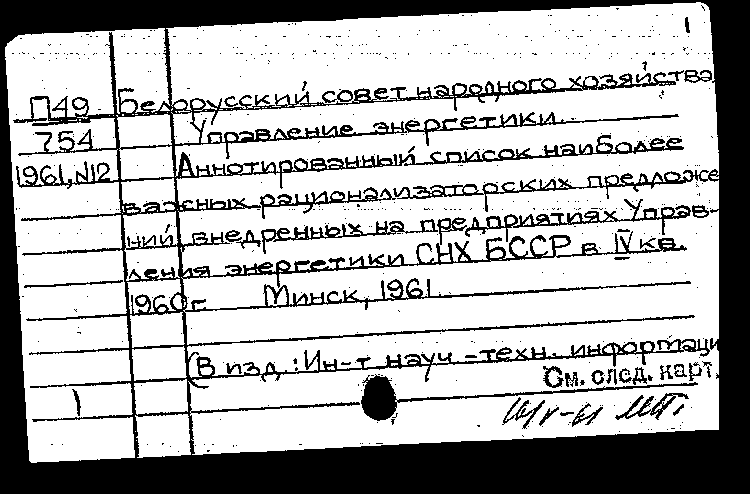 1
П49 Белорусский совет народного хозяйства
754 Управление энергетики.
1961, N12 Аннотированный список наиболее
важных рационализаторских предложе
ний, внедренных на предприятиях Управ-
ления энергетики СНХ БССР в IV кв.
1960 г. Минск, 1961
(В изд.: Ин-т науч-техн. информаци
См. след. карт.
1